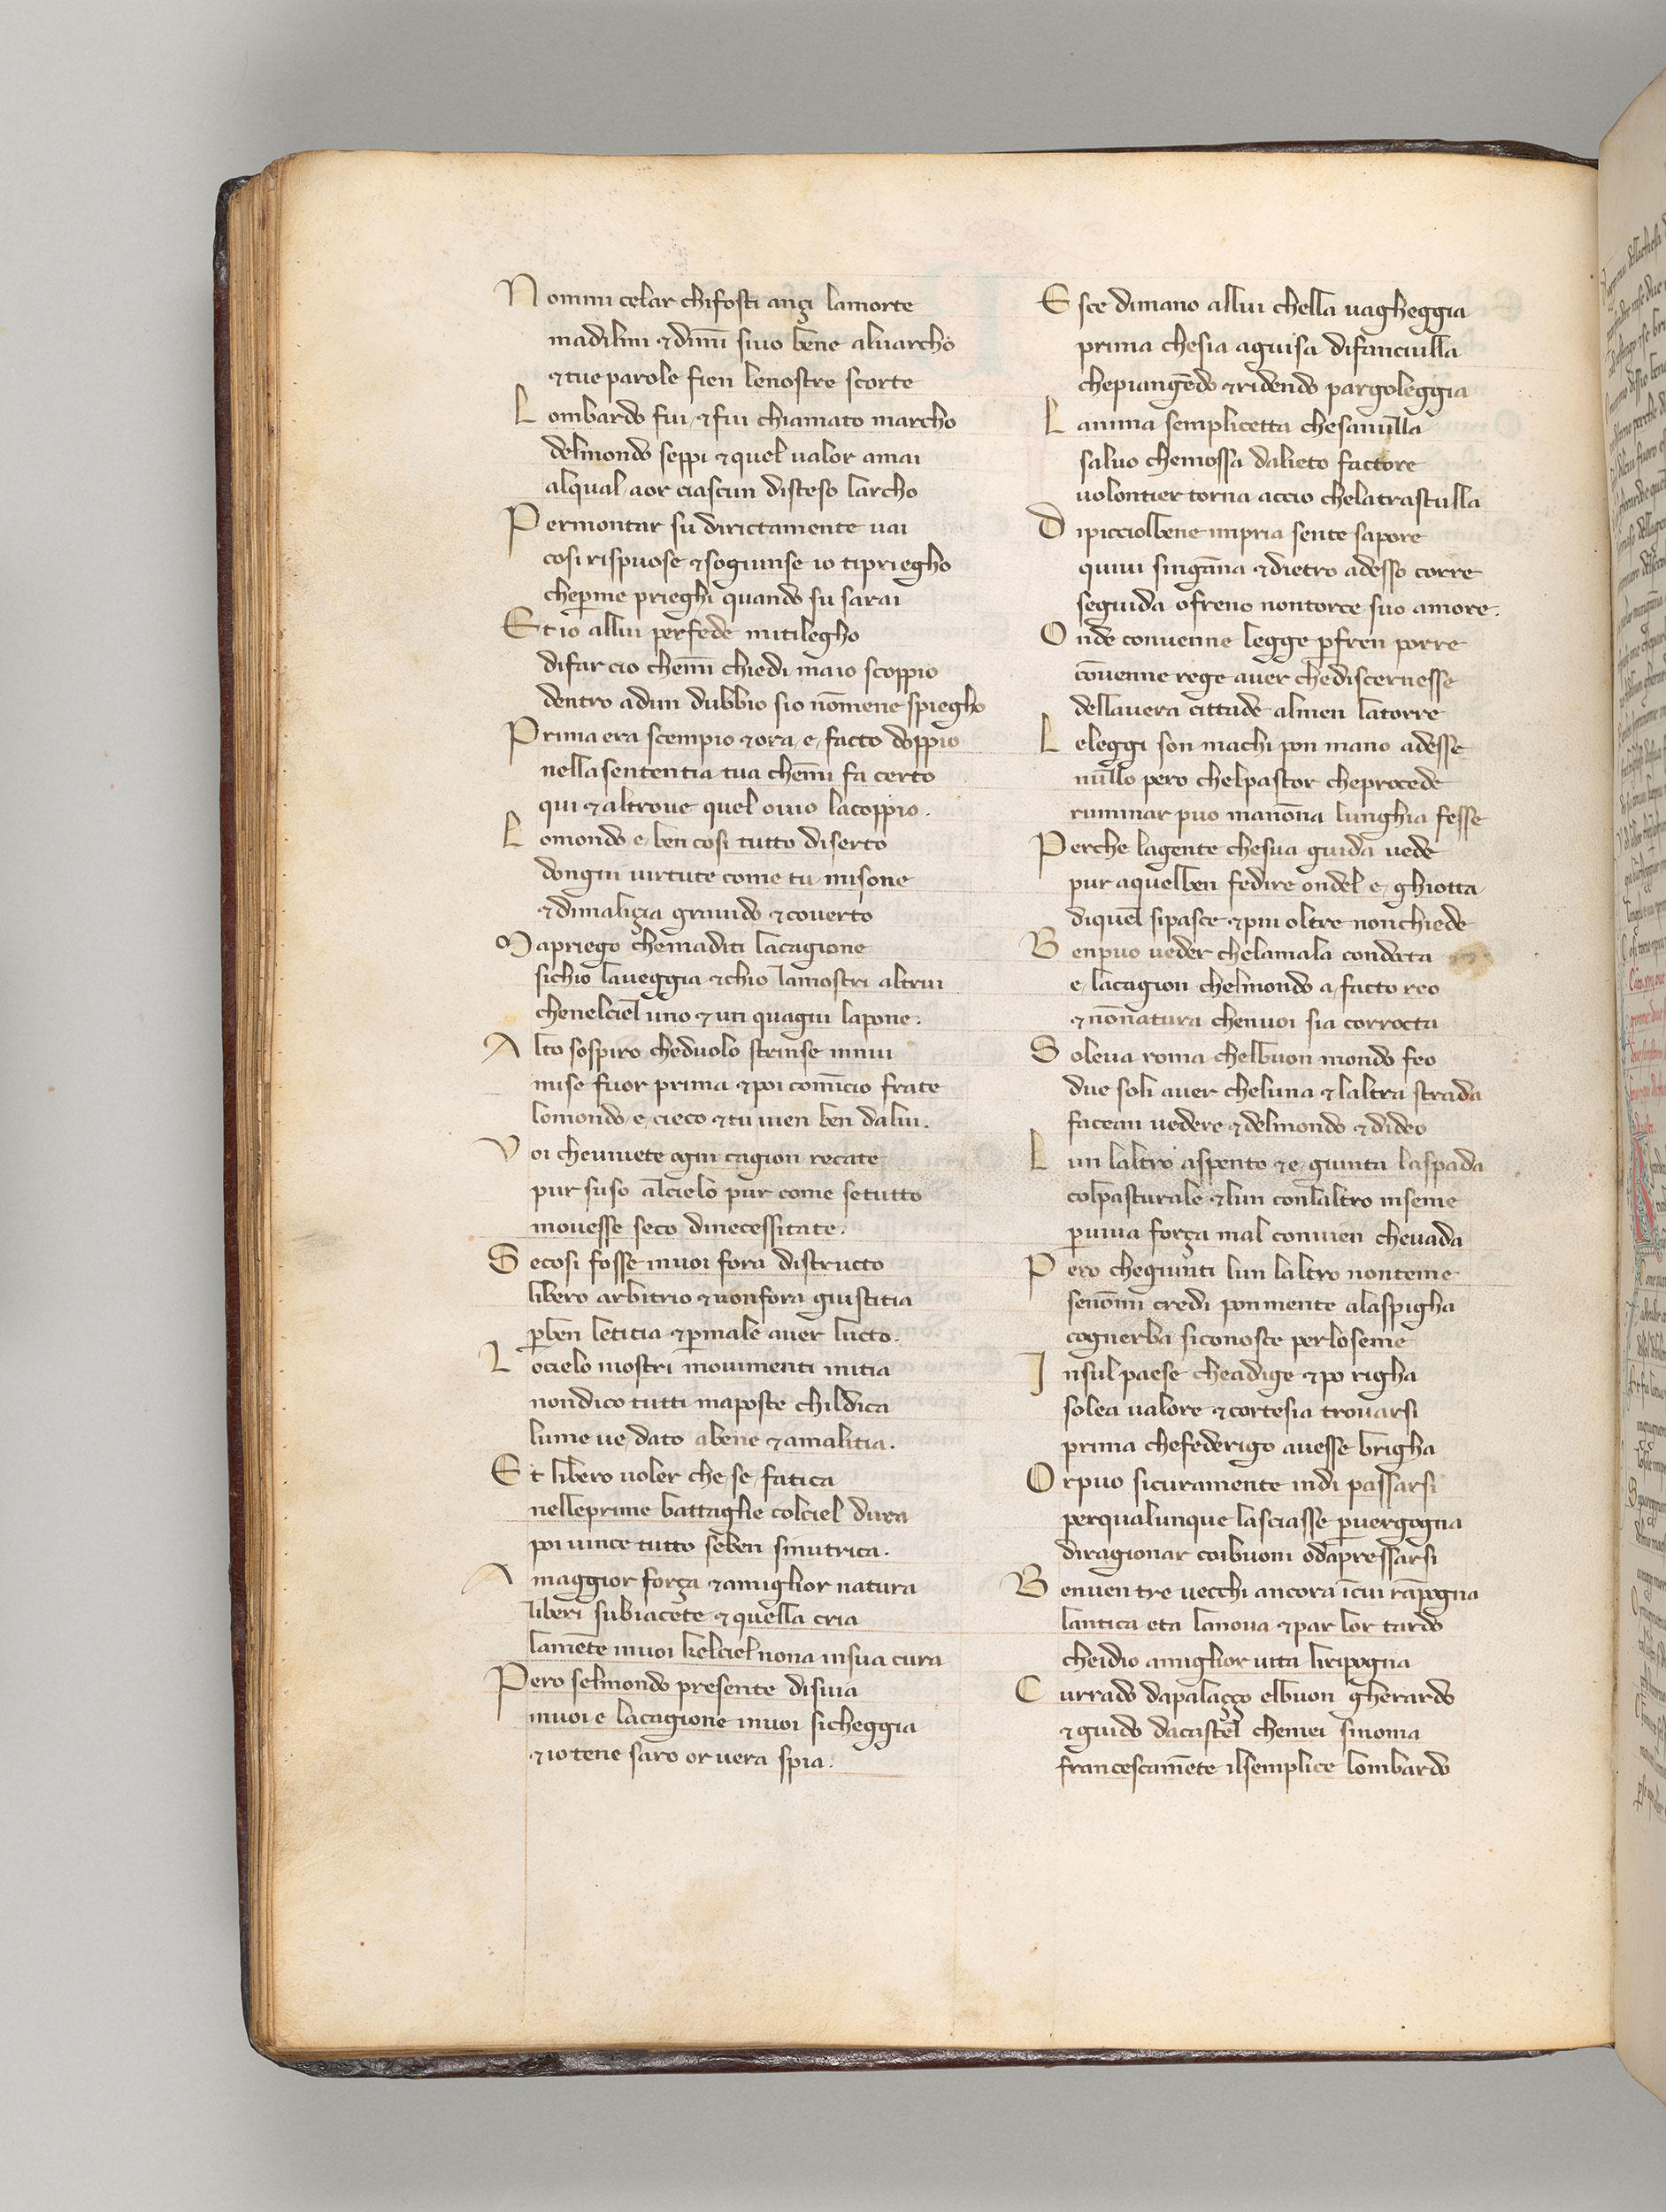 Nommi celar chi fosti anҫi lamorte
madilmi ⁊ dim̄i siuo bene aluarcho
⁊ tue parole fien lenostre scorte
Lombardo fui ⁊ fui chiamato marcho
delmondo seppi ⁊ quel ualor amai
alqual aor ciascun disteso larcho
Permontar su dirictamente uai
cosi rispuose ⁊ sogiunse io tipriegho
cheꝑme prieghi quando su sarai
Et io allui perfede mitilegho
difar cio chem̄i chiedi maio scoppio
dentro adun dubbio sio nōmene spiegho
Prima era scempio ⁊ ora e facto doppio
nella sententia tua chem̄i fa certo
qui ⁊ altroue quel ouio lacoppio.
Lo mondo e ben cosi tutto diserto
dongni uirtute come tu misone
⁊ dimaliҫia grauido ⁊ couerto
Mapriego chemaditi lacagione
sichio laueggia ⁊ chio lamostri altrui
chenelciel uno ⁊ un quagiu lapone.
Alto sospiro cheduolo strinse inhui
mise fuor prima ⁊ poi comīcio frate
lomondo e cieco ⁊ tu uien ben dalui.
Voi cheuiuete ogni cagion recate
pur suso alcielo pur come setutto
mouesse seco dinecessitate.
Secosi fosse inuoi fora distructo
libero arbitrio ⁊ nonfora giustitia
ꝑben letitia ⁊ ꝑmale auer lucto.
Locielo uostri mouimenti initia
nondico tutti maposte childica
lume ue dato abene ⁊ amalitia.
Et libero uoler che se fatica
nelleprime battaglie colciel dura
poi uince tutto seben sinutrica.
A maggior forҫa ⁊ amiglior natura
liberi subiacēte ⁊ quella cria
lamēte inuoi kelciel nona insua cura
Pero selmondo presente disuia
inuoi e lacagione inuoi sicheggia
⁊ io tene saro or uera spia.
Esce dimano allui chella uagheggia
prima chesia aguisa difanciulla
chepiangēdo ⁊ ridendo pargoleggia
Lanima semplicetta chesanulla
saluo chemossa dalieto factore
uolontier torna accio chelatrastulla
Dipicciolbene impria sente sapore
quiui singāna ⁊ dietro adesso corre
seguida ofreno nontorce suo amore.
Onde conuenne legge ꝑfren porre
cōuenne rege auer chediscernesse
dellauera cittade almen latorre
Leleggi son machi pon mano adesse
nullo pero chelpastor cheprocede
ruminar puo manōna lunghia fesse
Perche lagente chesua guida uede
pur aquelben fedire ondel e ghiotta
diquel sipasce ⁊ piu oltre nonchiede
Benpuo ueder chelamala condotta
e lacagion chelmondo a facto reo
⁊ nōnatura chenuoi sia corrocta
Soleua roma chelbuon mondo feo
due soli auer cheluna ⁊ laltra strada
facean uedere ⁊ delmondo ⁊ dideo
Lun laltro aspento ⁊ e giunta laspada
colpasturale ⁊ lun conlaltro inseme
ꝑuiua forҫa mal conuien cheuada
Pero chegiunti lun laltro nonteme
senōmi credi ponmente alaspigha
cognerba siconosce perloseme
Insul paese cheadige ⁊ po righa
solea ualore ⁊ cortesia trouarsi
prima chefederigo auesse brigha
Orpuo sicuramente indi passarsi
perqualunque lasciasse ꝑuergogna
diragionar coibuoni odapressarsi
Benuen tre uecchi ancora īcui rāpogna
lantica eta lanoua ⁊ par lor tardo
cheidio amiglior uita liripogna
Currado dapalaҫҫo elbuon gherardo
⁊ guido dacastel chemei sinoma
francescamēte ilsemplice lombardo